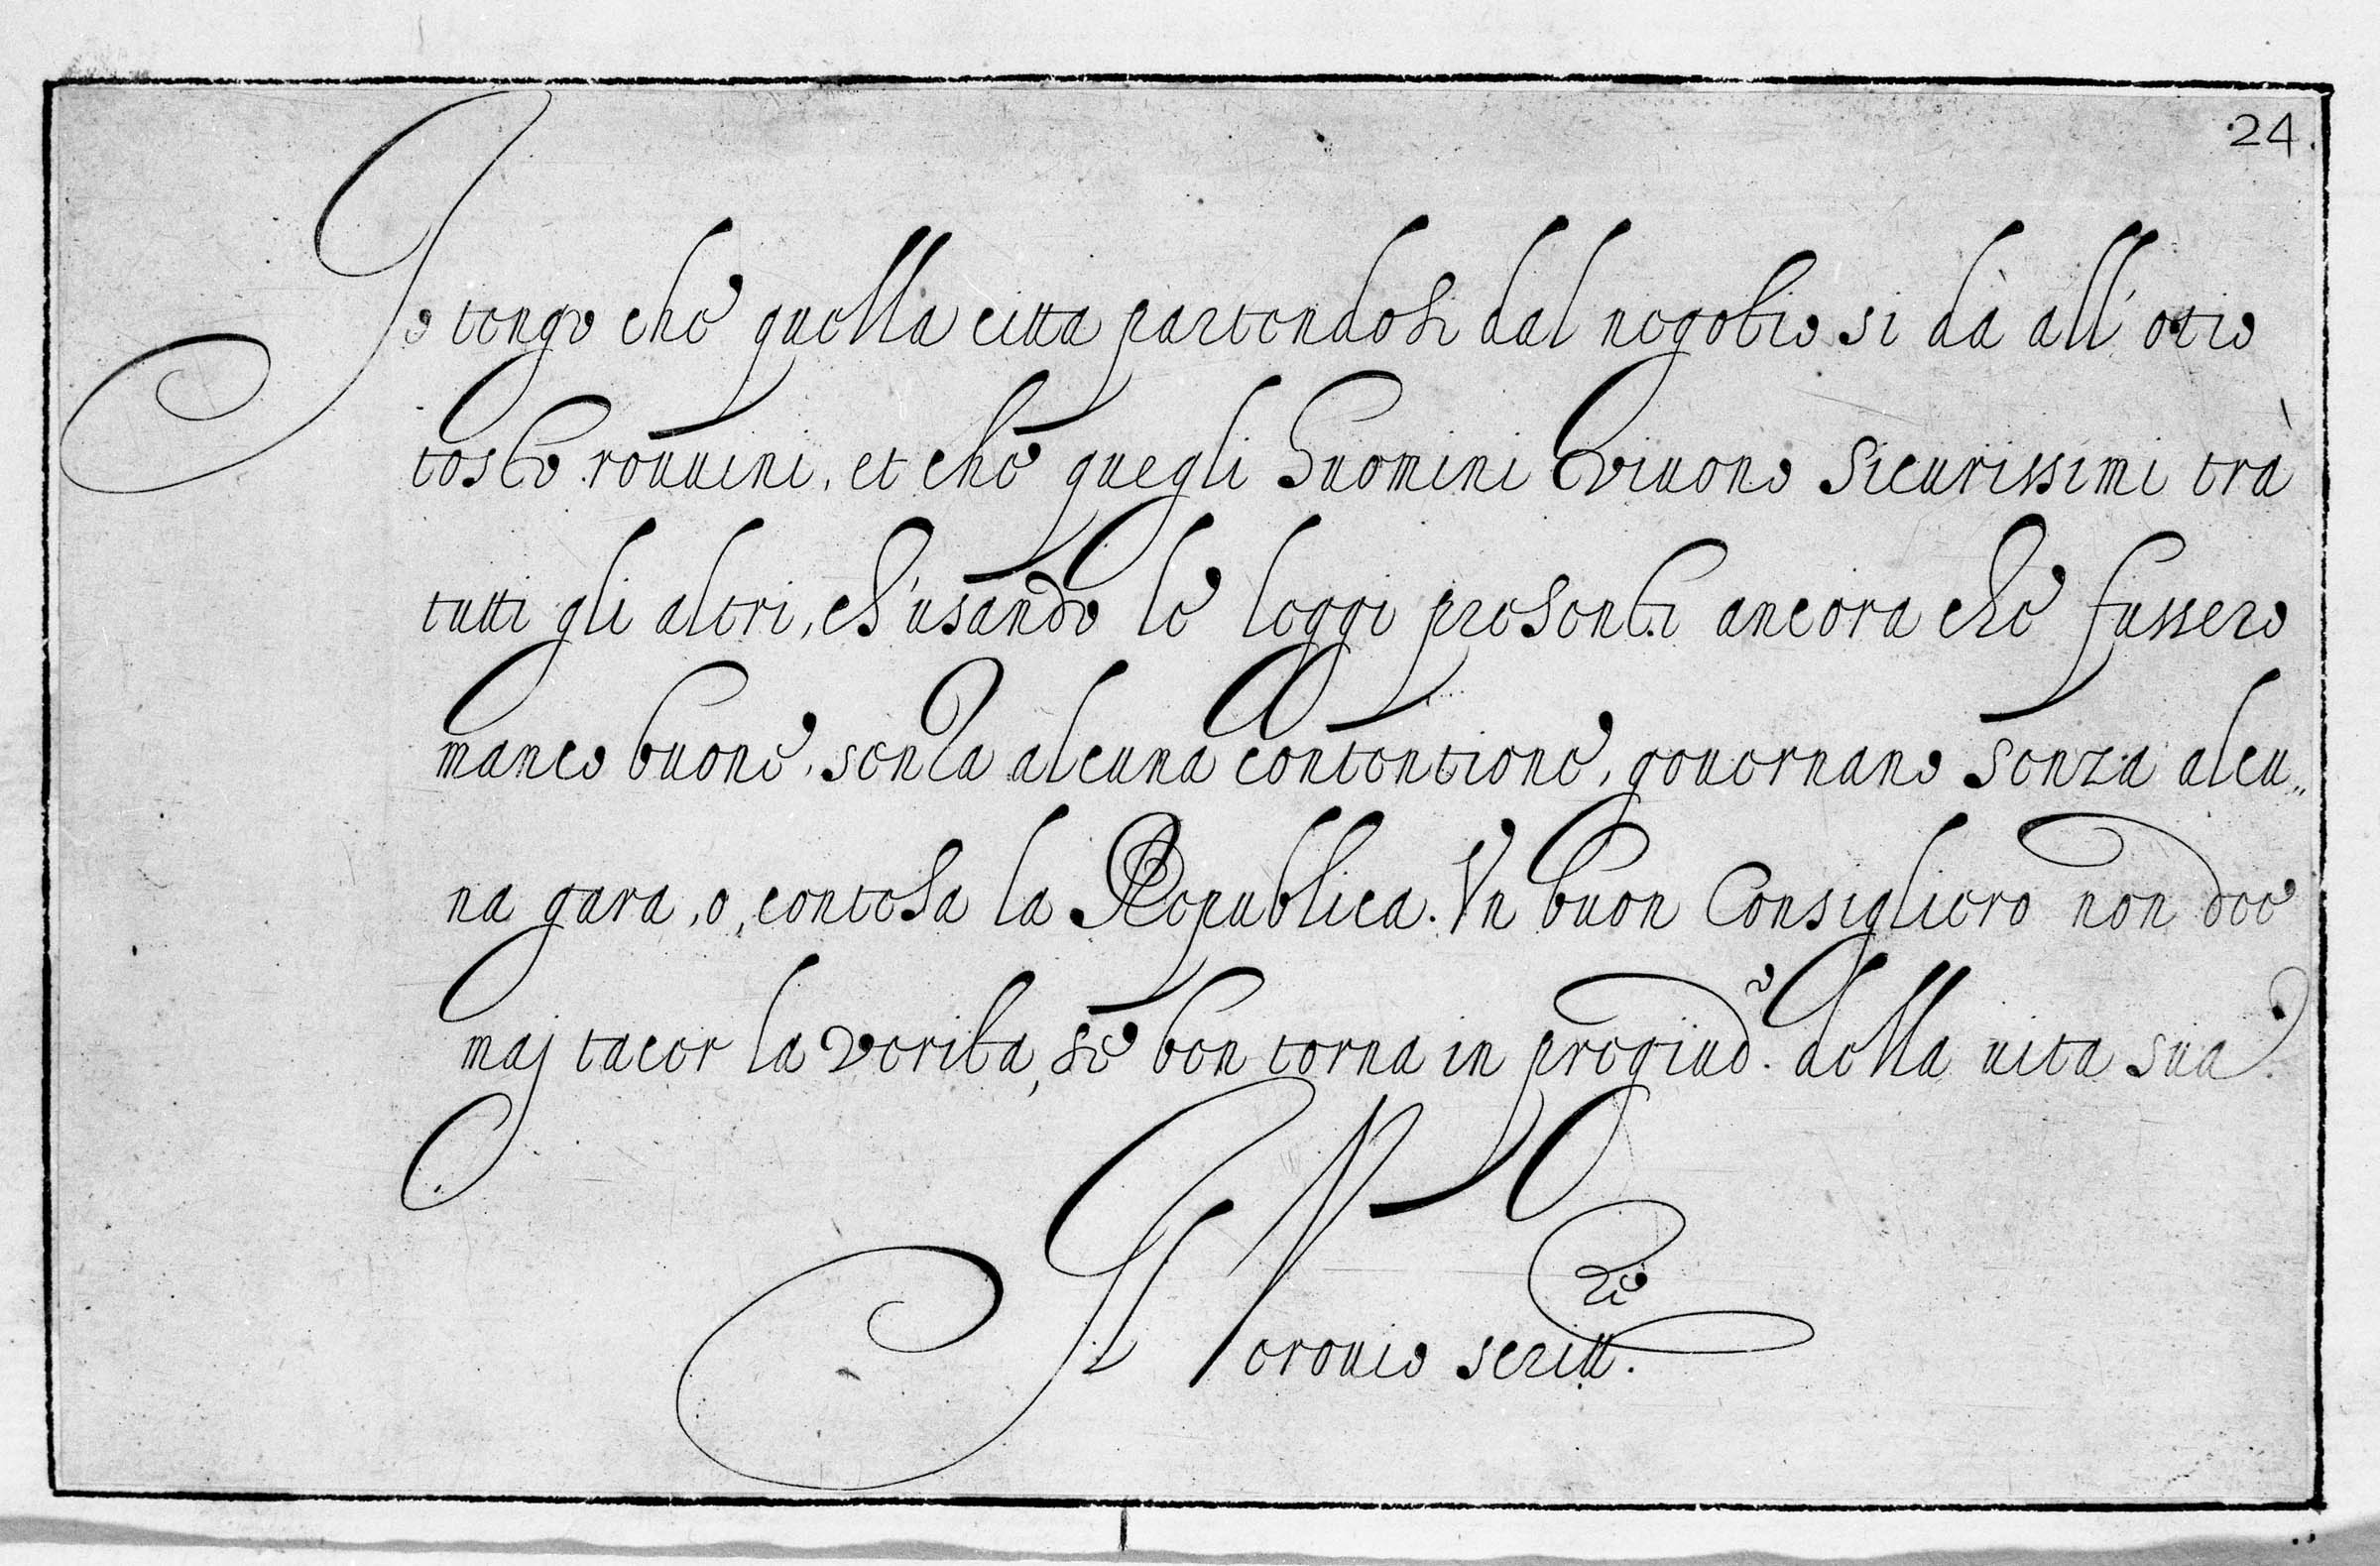 24.
Io tengo che quella citta partendosi dal negotio si dà all'otio
tosto rouuini, et che quegli huomini viuono sicurissimi trà
tutti gli altri, ch'usando le leggi presenti ancora che fussero
manco buone, senza alcuna contentione, gouernano senza alcu„
na gara, o, contesa la Republica. Vn buon Consigliero non dee
maj tacer la verita, se ben torna in pregiud.o della uita sua.
Il Verouio scritt.re